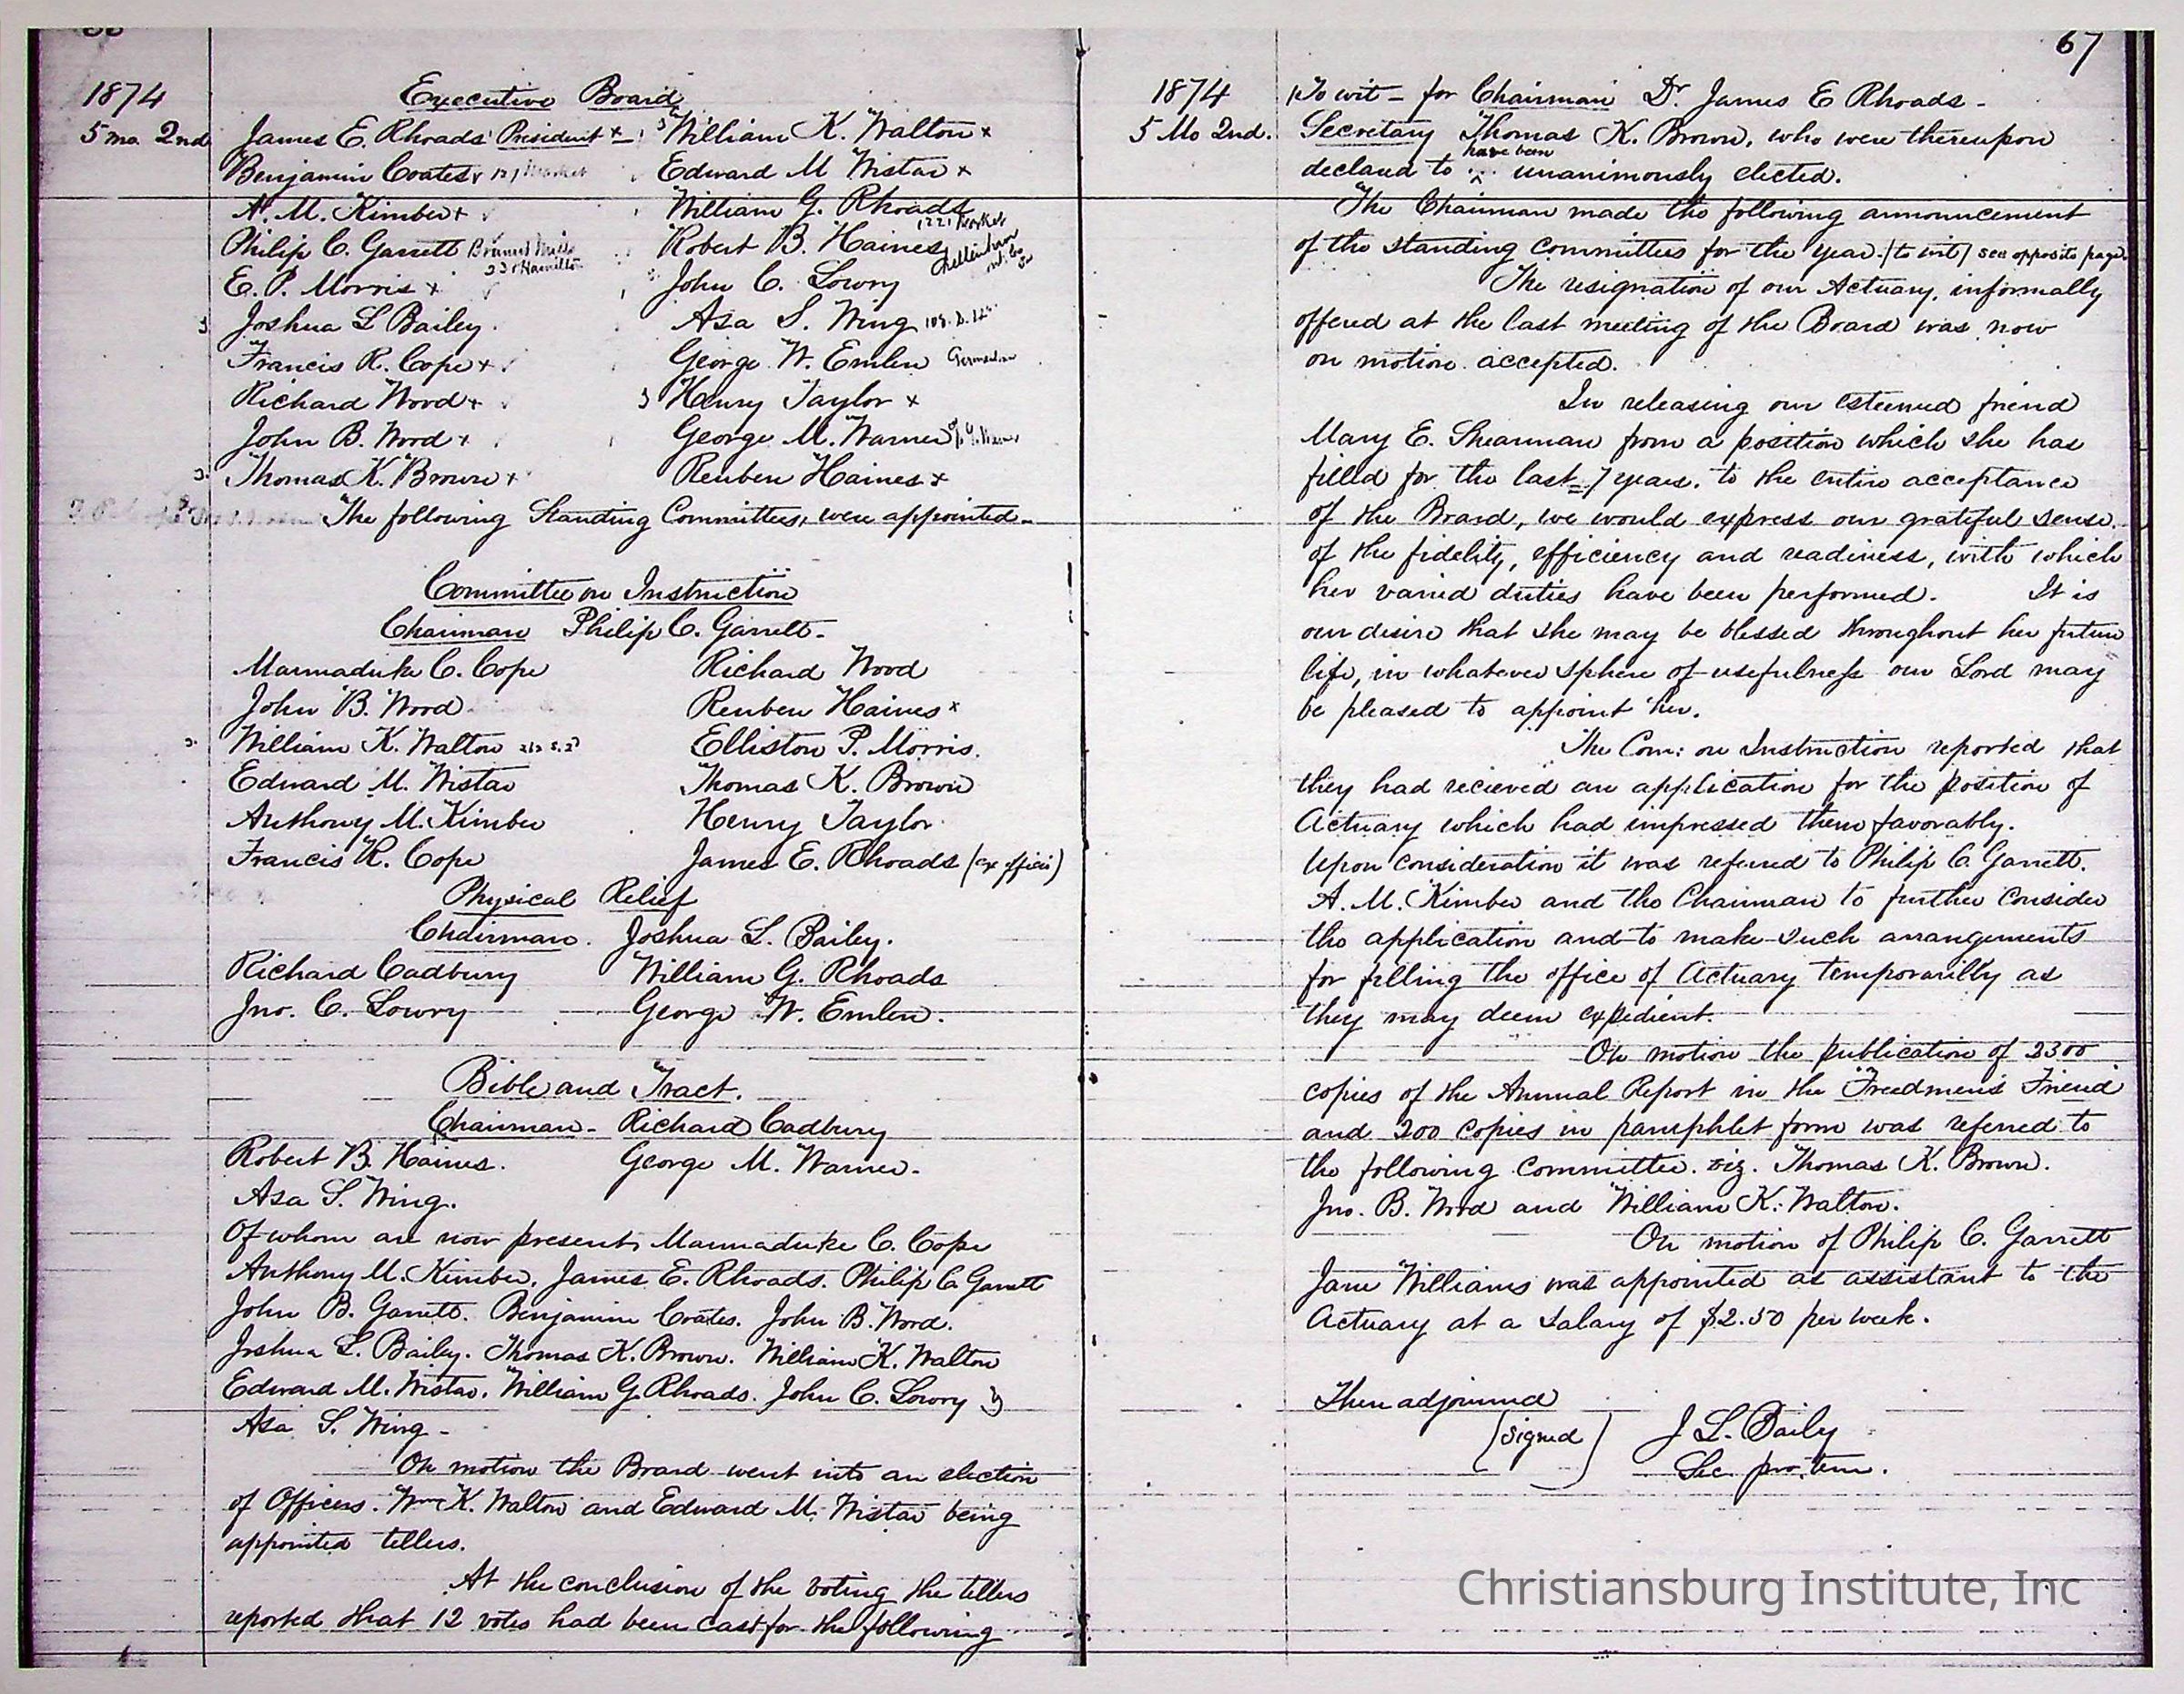 66
1874
5 mo. 2nd
Executive Board
James E. Rhoads President x
William K. Walton x
Benjamin Coates x 127 Market
Edward M Wistar x
A. M. Kimber x
William G. Rhoads
1221 Market
Philip C. Garrett
Robert B. Haines
E. P. Morris x
John C. Lowry
Joshua L Bailey.
Asa S. Wing
Francis R. Cope x
George W. Emlen
Richard Wood x
Henry Taylor x
John B. Wood x
George M. Warner
Thomas K. Brown x
Reuben Haines x
The following Standing Committees, were appointed.
Committee on Instruction
Chairman Philip C. Garrett.
Marmaduke C. Cope
Richard Wood
John B. Wood
Reuben Haines x
William K. Walton
Elliston P. Morris.
Edward M. Wistar
Thomas K. Brown
Anthony M. Kimber
Henry Taylor
Francis R. Cope
James E. Rhoads (ex officio)
Physical Relief
Chairman. Joshua L. Bailey.
Richard Cadbury
William G. Rhoads
Jno. C. Lowry
George W. Emlen.
Bible and Tract.
Chairman - Richard Cadbury
Robert B. Haines.
George M. Warner.
Asa S. Wing.
Of whom are now present, Marmaduke C. Cope
Anthony M. Kimber. James E. Rhoads. Philip C. Garrett
John B. Garrett. Benjamin Coates. John B. Wood.
Joshua L. Bailey. Thomas K. Brown. William K. Walton
Edward M. Wistar. William G. Rhoads. John C. Lowry &
Asa S. Wing -
On motion the Board went into an election
of Officers. Wm K. Walton and Edward M. Wistar being
appointed tellers.
At the conclusion of the voting the tellers
reported that 12 votes had been cast for the following
67
1874
5 Mo 2nd.
To wit - for Chairman Dr. James E Rhoads -
Secretary Thomas K. Brown, who were thereupon
have been
declared to unanimously elected.
The Chairman made the following announcement
of the standing committees for the year. (to wit) see opposite page
The resignation of our Actuary, informally
offered at the last meeting of the Board was now
on motion accepted.
In releasing our esteemed friend
Mary E. Shearman from a position which she has
filled for the last 7 years, to the entire acceptance
of the Board, we would express our grateful sense
of the fidelity, efficiency and readiness, with which
her varied duties have been performed. It is
our desire that she may be blessed throughout her future
life, in whatever sphere of usefulness our Lord may
be pleased to appoint her.
The Com: on Instruction reported that
they had recieved an application for the position of
Actuary which had impressed them favorably.
Upon consideration it was referred to Philip C. Garrett.
A. M. Kimber and the Chairman to further consider
the application and to make such arrangements
for filling the office of Actuary temporarilly as
they may deem expedient.
On motion the publication of 2300
copies of the Annual Report in the Freedmen's Friend
and 200 copies in pamphlet form was referred to
the following committee. viz. Thomas K. Brown.
Jno. B. Wood and William K. Walton.
On motion of Philip C. Garrett
Jane Williams was appointed as assistant to the
Actuary at a salary of $2.50 per week.
Then adjourned
(signed) J L. Baily
Sec. pro. tem.
Christiansburg Institute, Inc